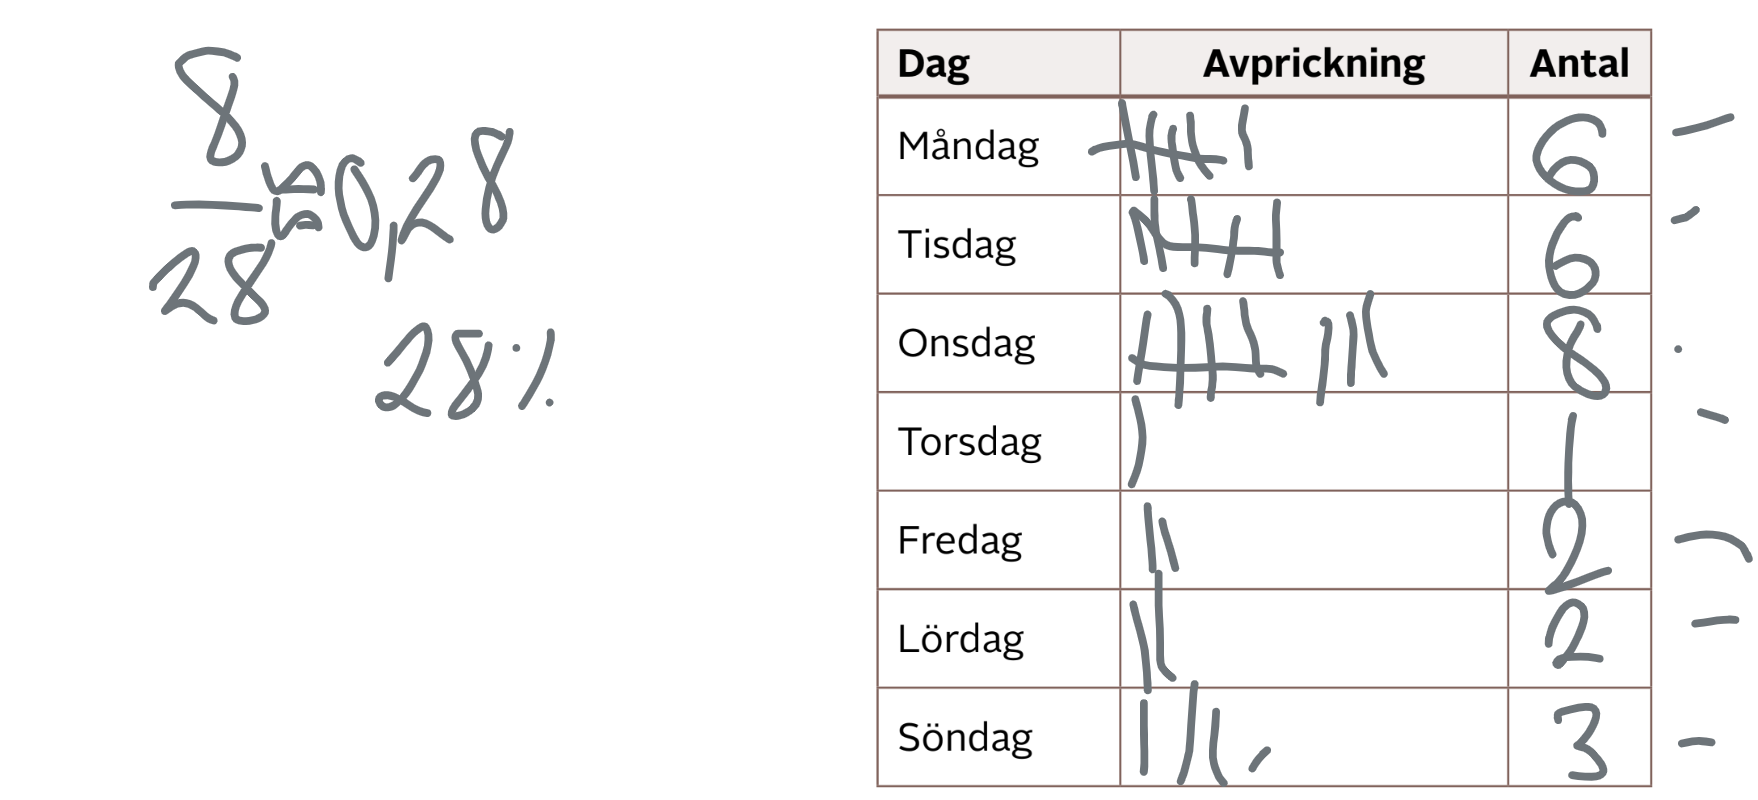 8
— ≈ 0,28
28
28 %
Dag Avprickning Antal
Måndag 6
Tisdag 6
Onsdag 8
Torsdag 1
Fredag 2
Lördag 2
Söndag 3